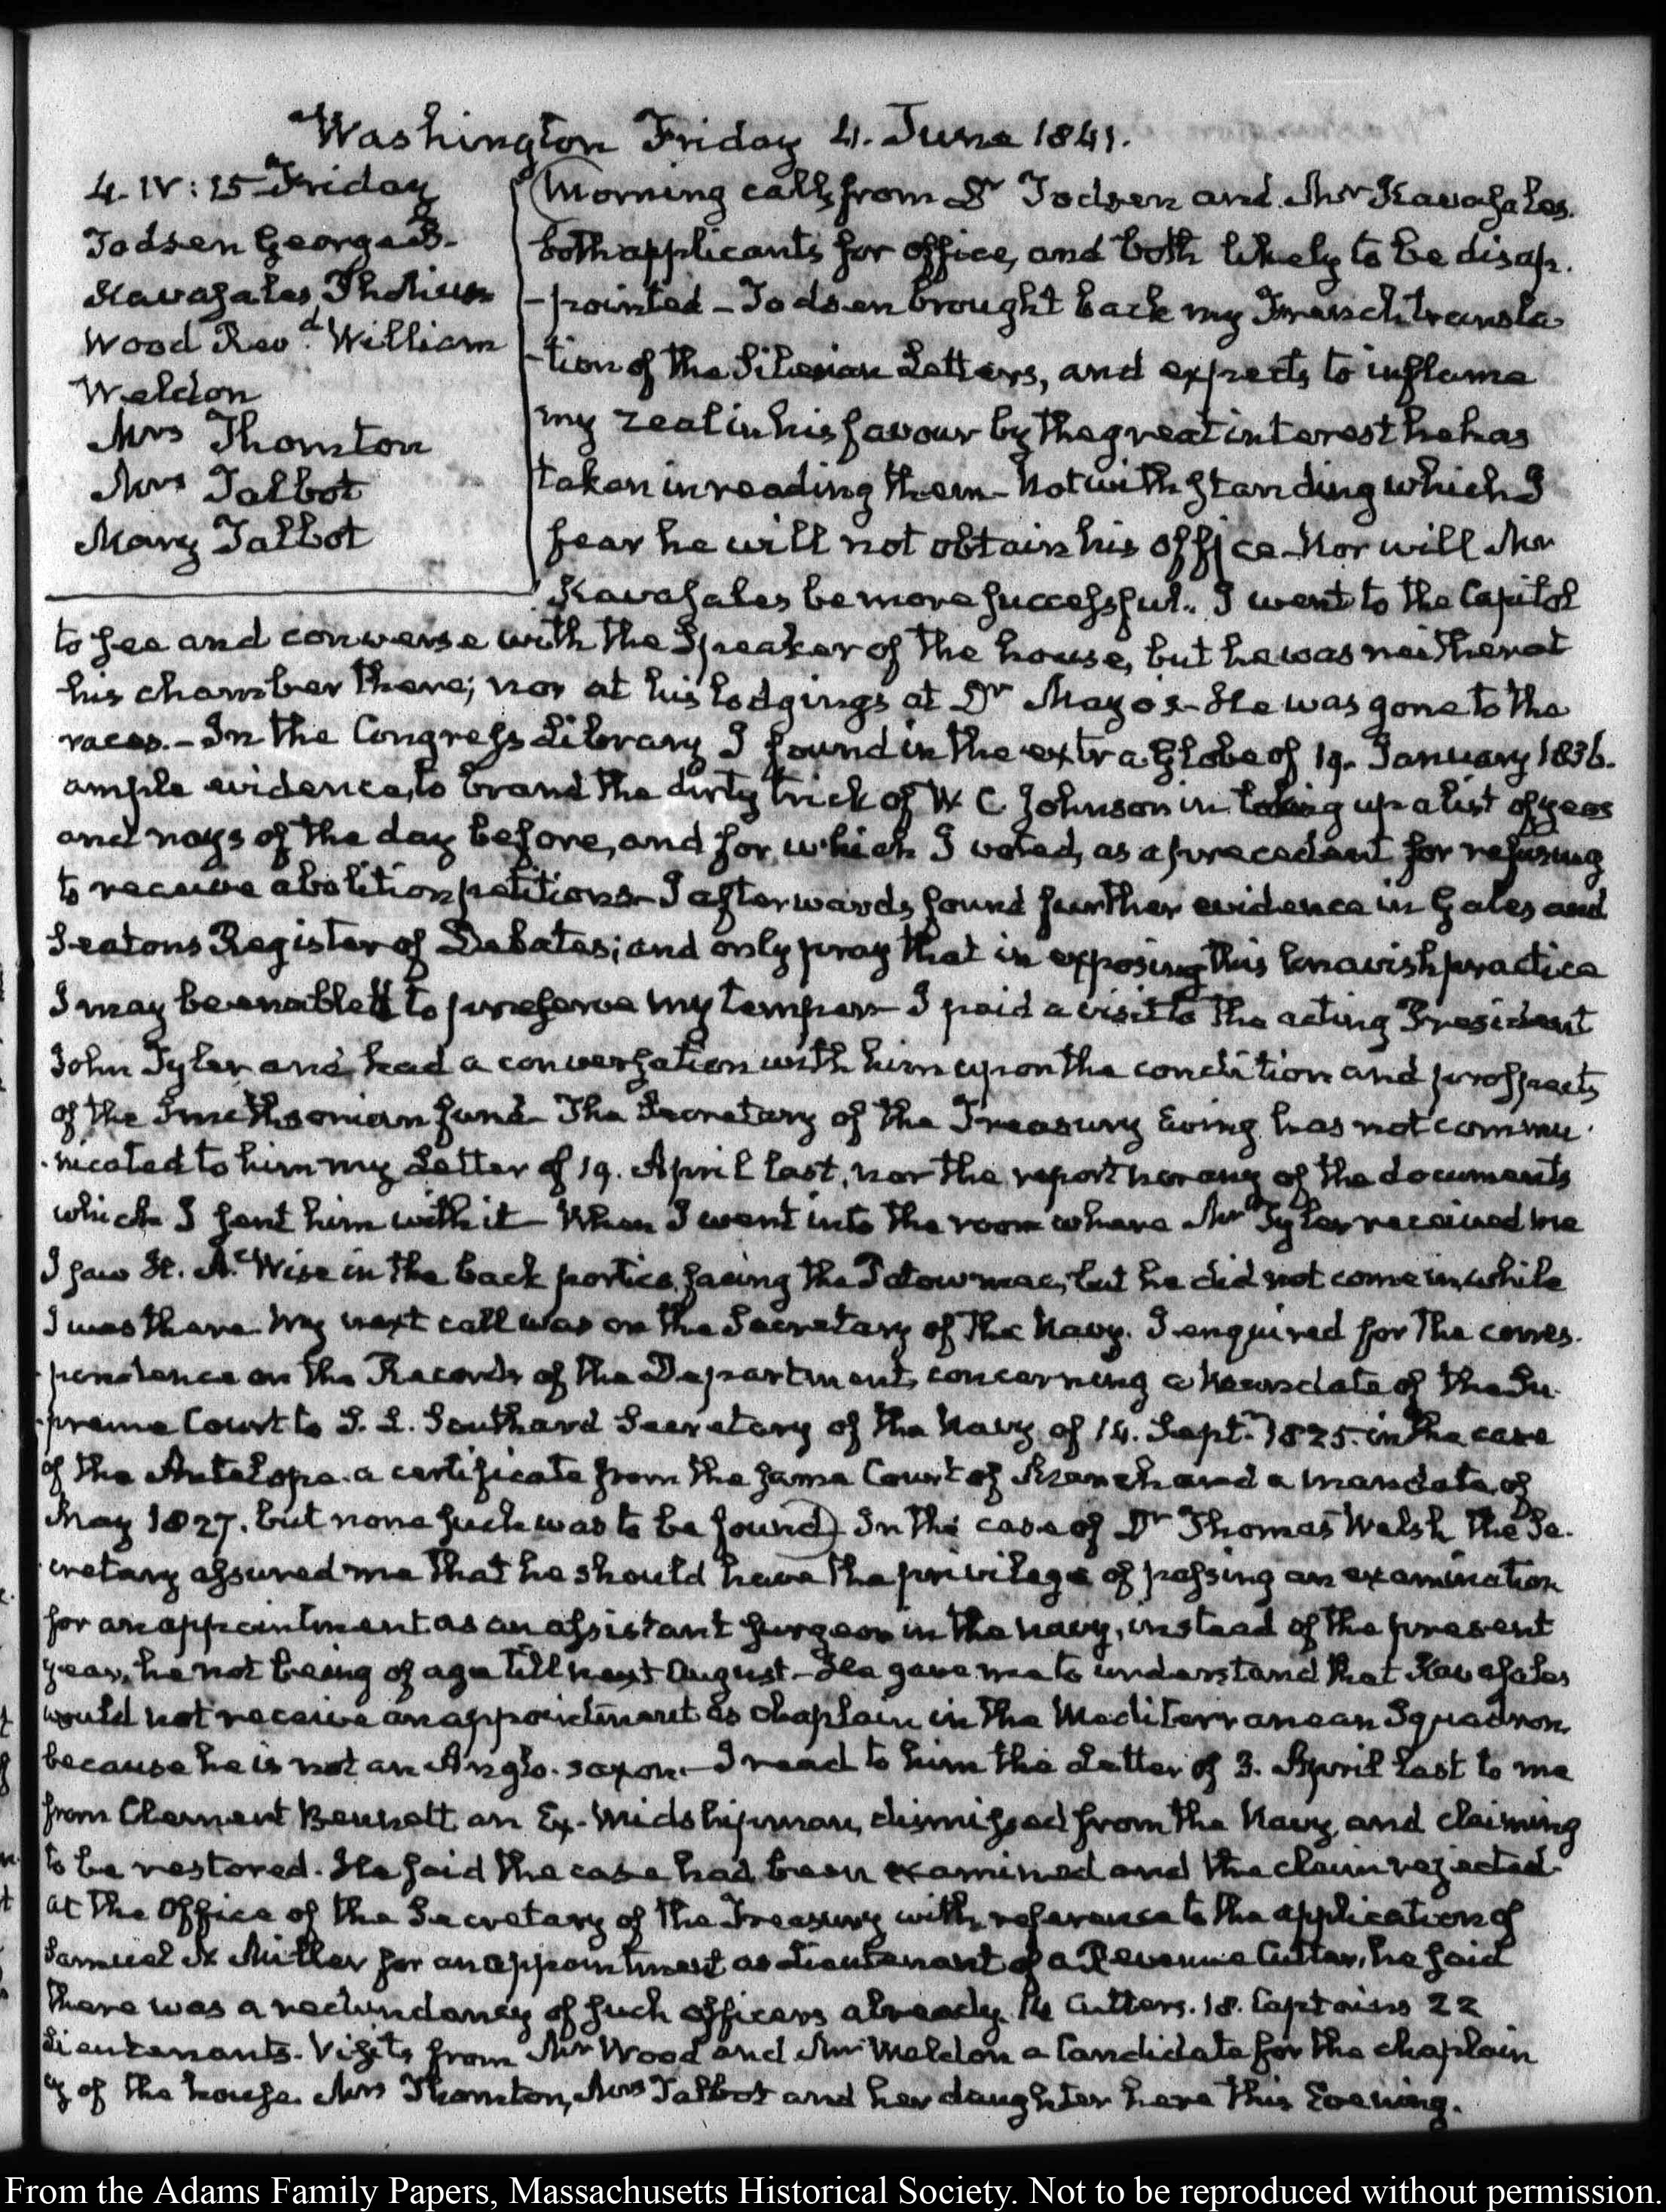 Washington Friday 4. June 1841.
4. IV: 15 Friday
Todsen George B.
Kavasales Photius
Wood Revd. William
Weldon
Mrs Thornton
Mrs Talbot
Mary Talbot
Morning calls from Dr Todsen and Mr Kavasales.
both applicants for office, and both likely to be disap-
-pointed — Todsen brought back my French transla-
-tion of the Silesian Letters, and expects to inflame
my zeal in his favour by the great interest he has
taken in reading them — Notwithstanding which I
fear he will not obtain his office — Nor will Mr
Kavasales be more successful. I went to the Capitol
to see and converse with the Speaker of the house, but he was neither at
his chamber there; nor at his lodgings at Dr Mayo's — He was gone to the
races. — In the Congress Library I found in the extra Globe of 19. January 1836.
ample evidence, to brand the dirty trick of W. C. Johnson in taking up a list of yeas
and nays of the day before, and for which I voted, as a precedent for refusing
to receive abolition petitions — I afterwards found further evidence in Gales and
Seatons Register of Debates; and only pray that in exposing this knavish practice
I may be enabled to preserve my temper — I paid a visit to the acting President
John Tyler and had a conversation with him upon the condition and prospects
of the Smithsonian fund — The Secretary of the Treasury Ewing has not commu-
-nicated to him my Letter of 19. April last, nor the report nor any of the documents
which I sent him with it — When I went into the room where Mr Tyler received me
I saw H. A. Wise in the back portico, facing the Potowmac, but he did not come in, while
I was there. My next call was on the Secretary of the Navy. I enquired for the corres-
-pondence on the Records of the Department, concerning a mandate of the Su-
-preme Court to S. L. Southard Secretary of the Navy of 14. Septr. 1825. in the case
of the Antelope. a certificate from the same Court of March and a mandate of
May 1827. but none such was to be found) In the case of Dr Thomas Welsh the Se-
-cretary assured me that he should have the privilege of passing an examination
for an appointment as an assistant surgeon in the navy, instead of the present
year, he not being of age till next August — He gave me to understand that Kavasales
would not receive an appointment as chaplain in the Mediterranean Squadron,
because he is not an Anglo-saxon — I read to him the Letter of 3. April last to me
from Clement Bennett an Ex-Midshipman, dismissed from the Navy, and claiming
to be restored. He said the case had been examined and the claim rejected
at the Office of the Secretary of the Treasury with reference to the application of
Samuel Miller for an appointment as Lieutenant of a Revenue Cutter, he said
there was a redundancy of such officers already. 14 Cutters. 18. Captains 22
Lieutenants. Visits from Mr Wood and Mr Weldon a Candidate for the chaplain
cy of the house. Mrs Thornton, Mrs Talbot and her daughter here this Evening.
From the Adams Family Papers, Massachusetts Historical Society. Not to be reproduced without permission.